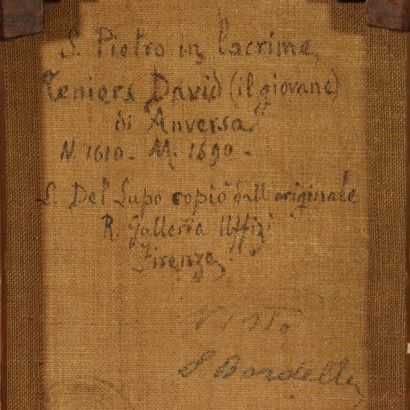 S. Pietro in lacrime
Teniers David (il giovane)
di Anversa"
N. 1610 - M. 1690 -
L. Del Lupo copiò dall'originale
R. Galleria Uffizi
Firenze"
Visto
Bardelli